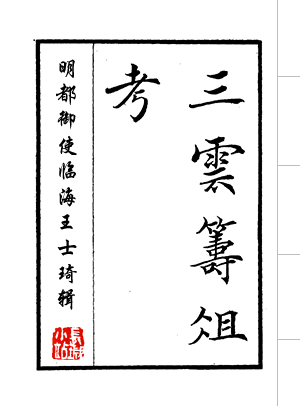 三雲籌俎
考
明都御使臨海王士琦辑